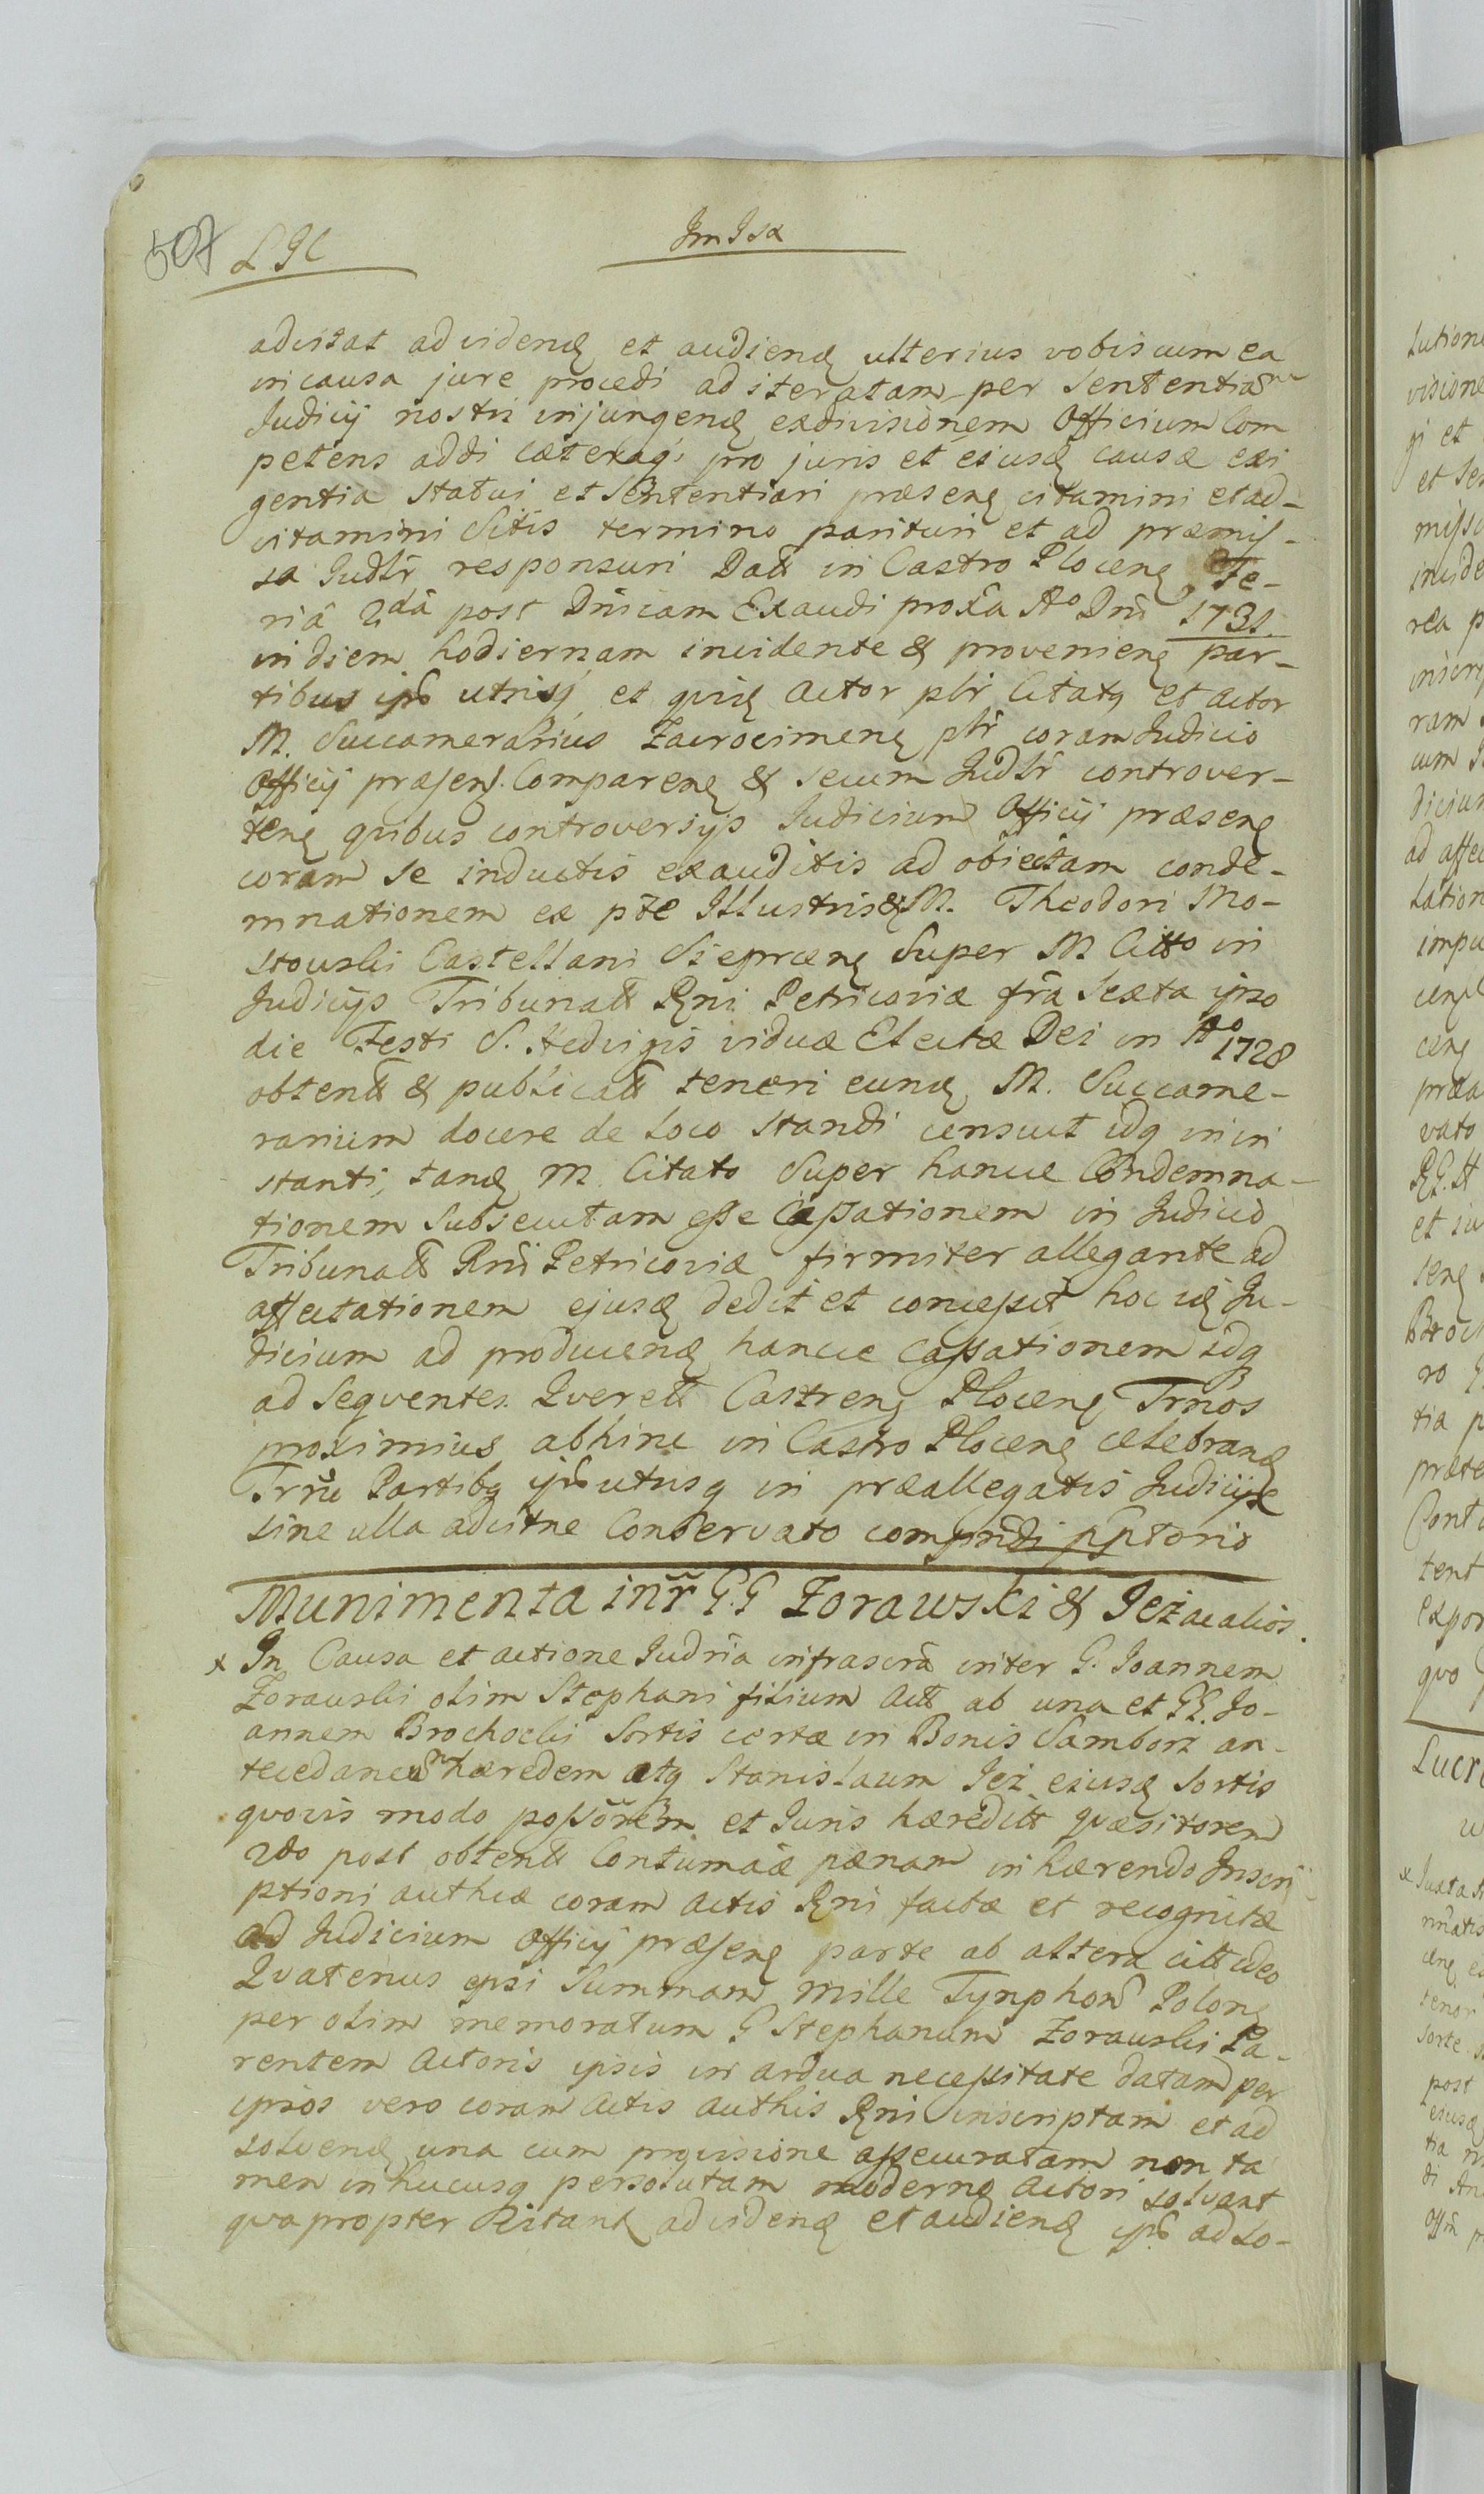 507 L JC
Jm Jsa
adcitat ad videnđ et audienđ ulterius vobiscum ea
in causa jure procedi ad iteratam per Sententiam
Judicij nostri injungenđ exdivisionem Officium Com
petens addi cæteraq; pro juris et ejusđ causæ exi
gentia statui et Sententiari præsenꝭ citamini et ad-
citamini Sitis termino parituri et ad præmiſ-
sa Judlr responsuri Datt in Castro Plocenꝭ Fe-
riâ 2dâ post Dnicam Exaudi proxa Ao Dni 1731.
in diem hodiernam incidente & provenienꝭ par-
tibus ipŝ utrisq et quiđ Actor plr Citatꝭ et Actor
M. Succamerarius Zacrocimenꝭ plr coram Judicio
Officij præsenꝭ. Comparenꝭ & secum Judlr controver-
tenꝭ quibus controversijs Judicium Officij præsenꝭ
coram se inductis exauditis ad obiectam conde-
mnationem ex pte Illustris & M. Theodori Mo-
stowski Castellani Sieprcenꝭ Super M Citto in
Judicijs Tribunatt Rni Petricoviæ fria Sexta ipso
die Festi S. Hedvigis viduæ Electæ Dei in Ao 1728
obtentt & publicatt teneri eunđ M. Succame-
rarium docere de loco standi censuit idq in in
stanti, tanđ M. Citato Super hancce Condemna-
tionem Subsecutam eſse Caſsationem in Judicio
Tribunatt Rni Petricoviæ firmiter allegante ad
affectationem ejusđ dedit et conceſsit hoc iđ Ju-
dicium ad producenđ hancce caſsationem idq
ad Sequentes Querett Castrenꝭ Plocenꝭ Trnos
proximius abhinc in Castro Plocenꝭ celebranđ
Trno Partibꝭ ipŝ utrisq in præallegatis Judicijs
sine ulla adcitne Conservato comprndi pptorio
Munimenta intr G.G Zorawski & Jeż ac alios.
x In Causa et actione Judria infrascra inter G. Joannem
Zorawski olim Stephani filium Actt ab una et GG. Jo-
annem Brochocki Sortis certæ in Bonis Samborz an-
tecedaneum hæredem atq Stanislaum Jeż ejusđ Sortis
quovis modo poſsorem et Juris hæreditt quæsitorem
2do post obtentt Contumaciæ pænam inhærendo Inscri
ptioni authcæ coram Actis Rni factæ et recognitæ
ad Judicium Officij præsenꝭ parte ab altera citt ideo
Quatenus ipsi Summam Mille Tynphonŝ Polonꝭ
per olim memoratum G Stephanum Zorawski Pa-
rentem Actoris ipsis in ardua neceſsitate datam per
ipsos vero coram Actis Authis Rni inscriptam et ad
solvenđ una cum provisione aſsecuratam non ta
men in hucusq persolutam moderno Actori solvant
qvapropter Citantꝭ ad videnđ et audienđ ipŝ ad so-